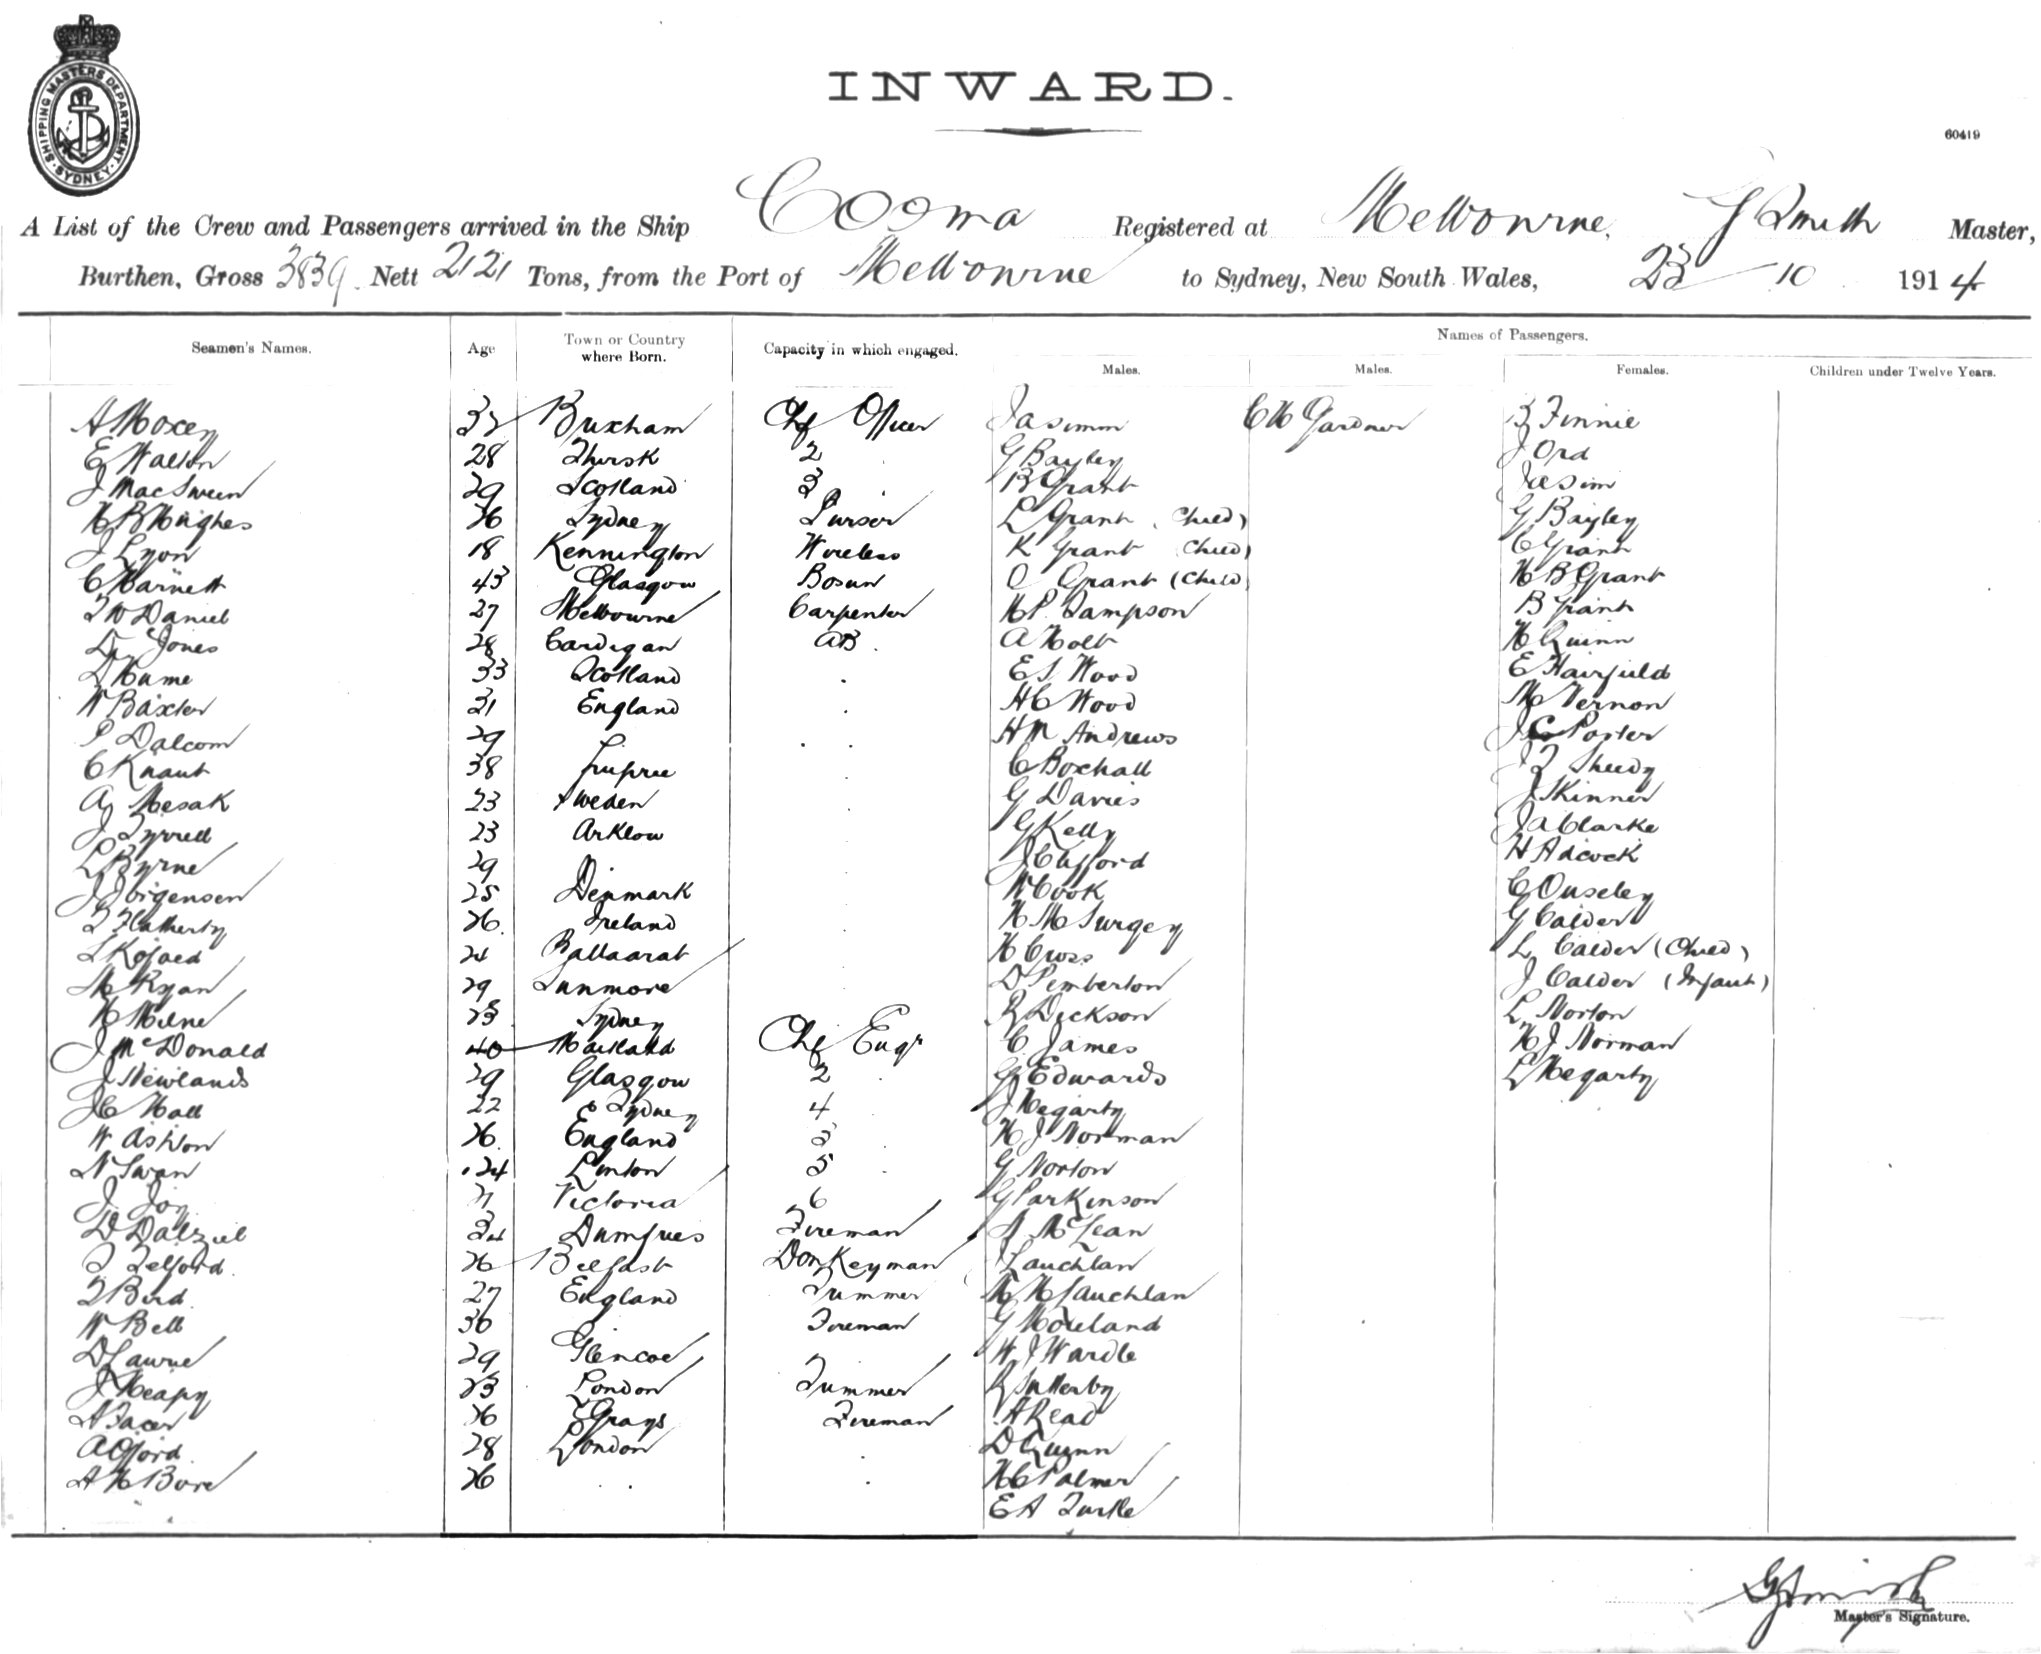 SHIPPING MASTERS DEPARTMENT · SYDNEY ·
INWARD.
60419
A List of the Crew and Passengers arrived in the Ship Cooma Registered at Melbourne, G Smith Master,
Burthen, Gross 3839. Nett 2121 Tons, from the Port of Melbourne to Sydney, New South Wales, 23 - 10 1914
Seamen's Names. Age Town or Country where Born. Capacity in which engaged. Names of Passengers.
Males. Males. Females. Children under Twelve Years.
A Moxey Bruxham Chf Officer C W Gardner B Finnie
E Walton 28 Thirsk 2 G Bayley J Ord
J MacSween 29 Scotland 3 B Grant
H B Hughes 26 Sydney Purser L Grant (Child) G Bayley
J Lyon 18 Kennington Wireless K Grant (Child) C Grant
C Harnett 43 Glasgow Bosun O Grant (Child) H B Grant
T W Daniel 27 Melbourne Carpenter H P Sampson B Grant
D Jones 28 Cardigan AB. A Holt H Quinn
D Hume 33 Scotland . E S Wood E Hairfield
W Baxter 31 England . H C Wood M Vernon
P Dalcom 29 . . H M Andrews J C Porter
C Knaut 38 C Boxhall J T Sheedy
A Mesak 23 Sweden . G Davies J Skinner
J Tyrrell 23 Arklow . G Kelly J A Clarke
L Byrne 29 J Clifford H Adcock
J Jorgensen 25 Denmark W Cook C Ouseley
T Flatherty 26. Ireland . H M Surgey G Calder
24 Ballaarat H Cross L Calder (Child)
M Ryan 29 Tunmore . D Pemberton J Calder (Infant)
H Milne 23 Sydney R Dickson L Norton
J McDonald 40 Maitland Chf Engr C James H J Norman
J Newlands 29 Glasgow 2 G Edwards L Hegarty
J C Hall 22 Sydney 4 J Hegarty
W Ashton 26. England 3 H J Norman
N Swan 24 Linton 5 G Norton
J Joy Victoria 6 G Parkinson
D Dalziel 24 Dumfries Fireman A McLean
T Telford. 26 Belfast Donkeyman J Lauchlan
T Bird 27 England Trimmer
W Bell 36 Fireman G Moreland
D Lawrie 29 Glencoe W J Wardle
J Heapy 23 London Trimmer R Sutterby
26 Grays Fireman A Read
A Offord. 28 London . D Quinn
A H Bore 26 . . . H C Palmer
E A Turtle
G Smith
Master's Signature.